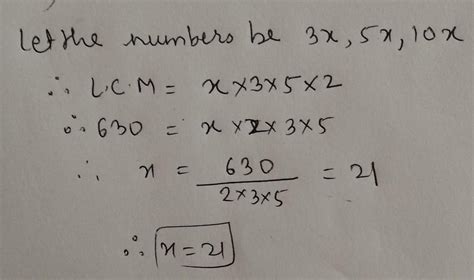 Let the numbers be 3x, 5x, 10x
∴ L.C.M = x×3×5×2
∴ 630 = x×2×3×5
∴ x = 630/2×3×5 = 21
∴ x = 21